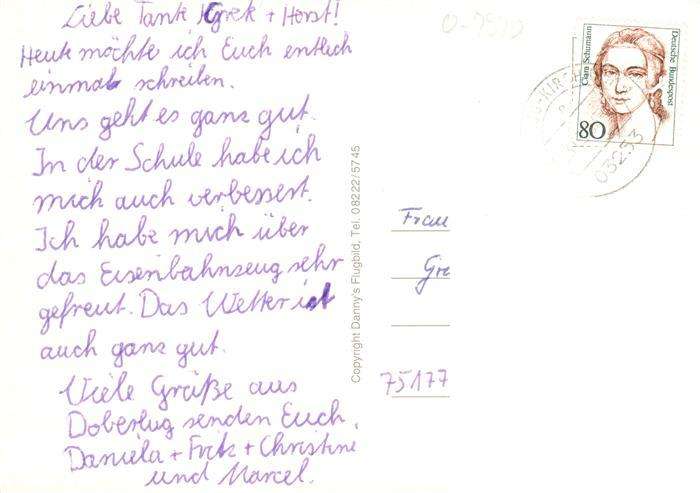 Liebe Tante + Horst!
Heute möchte ich Euch entlich
einmal schreiben.
Uns geht es ganz gut.
In der Schule habe ich
mich auch verbessert.
Ich habe mich über
das Eisenbahnzeug sehr
gefreut. Das Wetter ist
auch ganz gut.
Viele Grüße aus
Doberlug senden Euch,
Daniela + Fritz + Christine
und Marcel.
Copyright Danny's Flugbild, Tel. 08222/5745
Frau
Gre
75177
Clara Schumann
Deutsche Bundespost
80